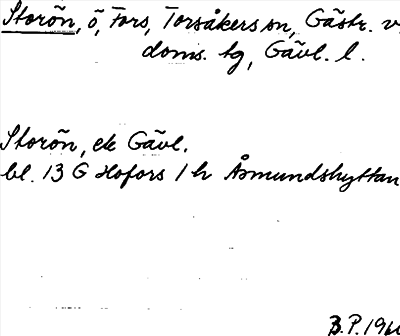 Storön, ö, Fors, Torsåkers sn, Gästr. v.
doms. tg, Gävl. l.
Storön, ek Gävl.
bl. 13 G Hofors 1 h Åsmundshyttan
B.P. 196